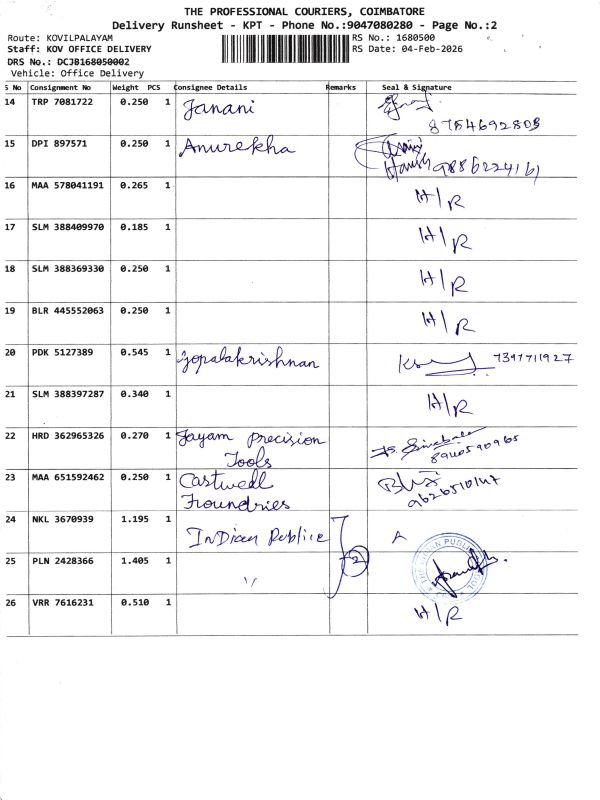 THE PROFESSIONAL COURIERS, COIMBATORE
Delivery Runsheet - KPT - Phone No.:9047080280 - Page No.:2
Route: KOVILPALAYAM RS No.: 1680500
Staff: KOV OFFICE DELIVERY RS Date: 04-Feb-2026
DRS No.: DCJB168050002
Vehicle: Office Delivery
S No Consignment No Weight PCS Consignee Details Remarks Seal & Signature
14 TRP 7081722 0.250 1 Janani
8754692803
15 DPI 897571 0.250 1 Anurekha
9886224161
16 MAA 578041191 0.265 1 H/R
17 SLM 388409970 0.185 1 H/R
18 SLM 388369330 0.250 1 H/R
19 BLR 445552063 0.250 1 H/R
20 PDK 5127389 0.545 1 Gopalakrishnan 7397711927
21 SLM 388397287 0.340 1 H/R
22 HRD 362965326 0.270 1 Jayam precision
Tools 8940590965
23 MAA 651592462 0.250 1 Castwell
Froundries 9626510147
24 NKL 3670939 1.195 1 InDian Publice A
25 PLN 2428366 1.405 1 〃 2
26 VRR 7616231 0.510 1 H/R